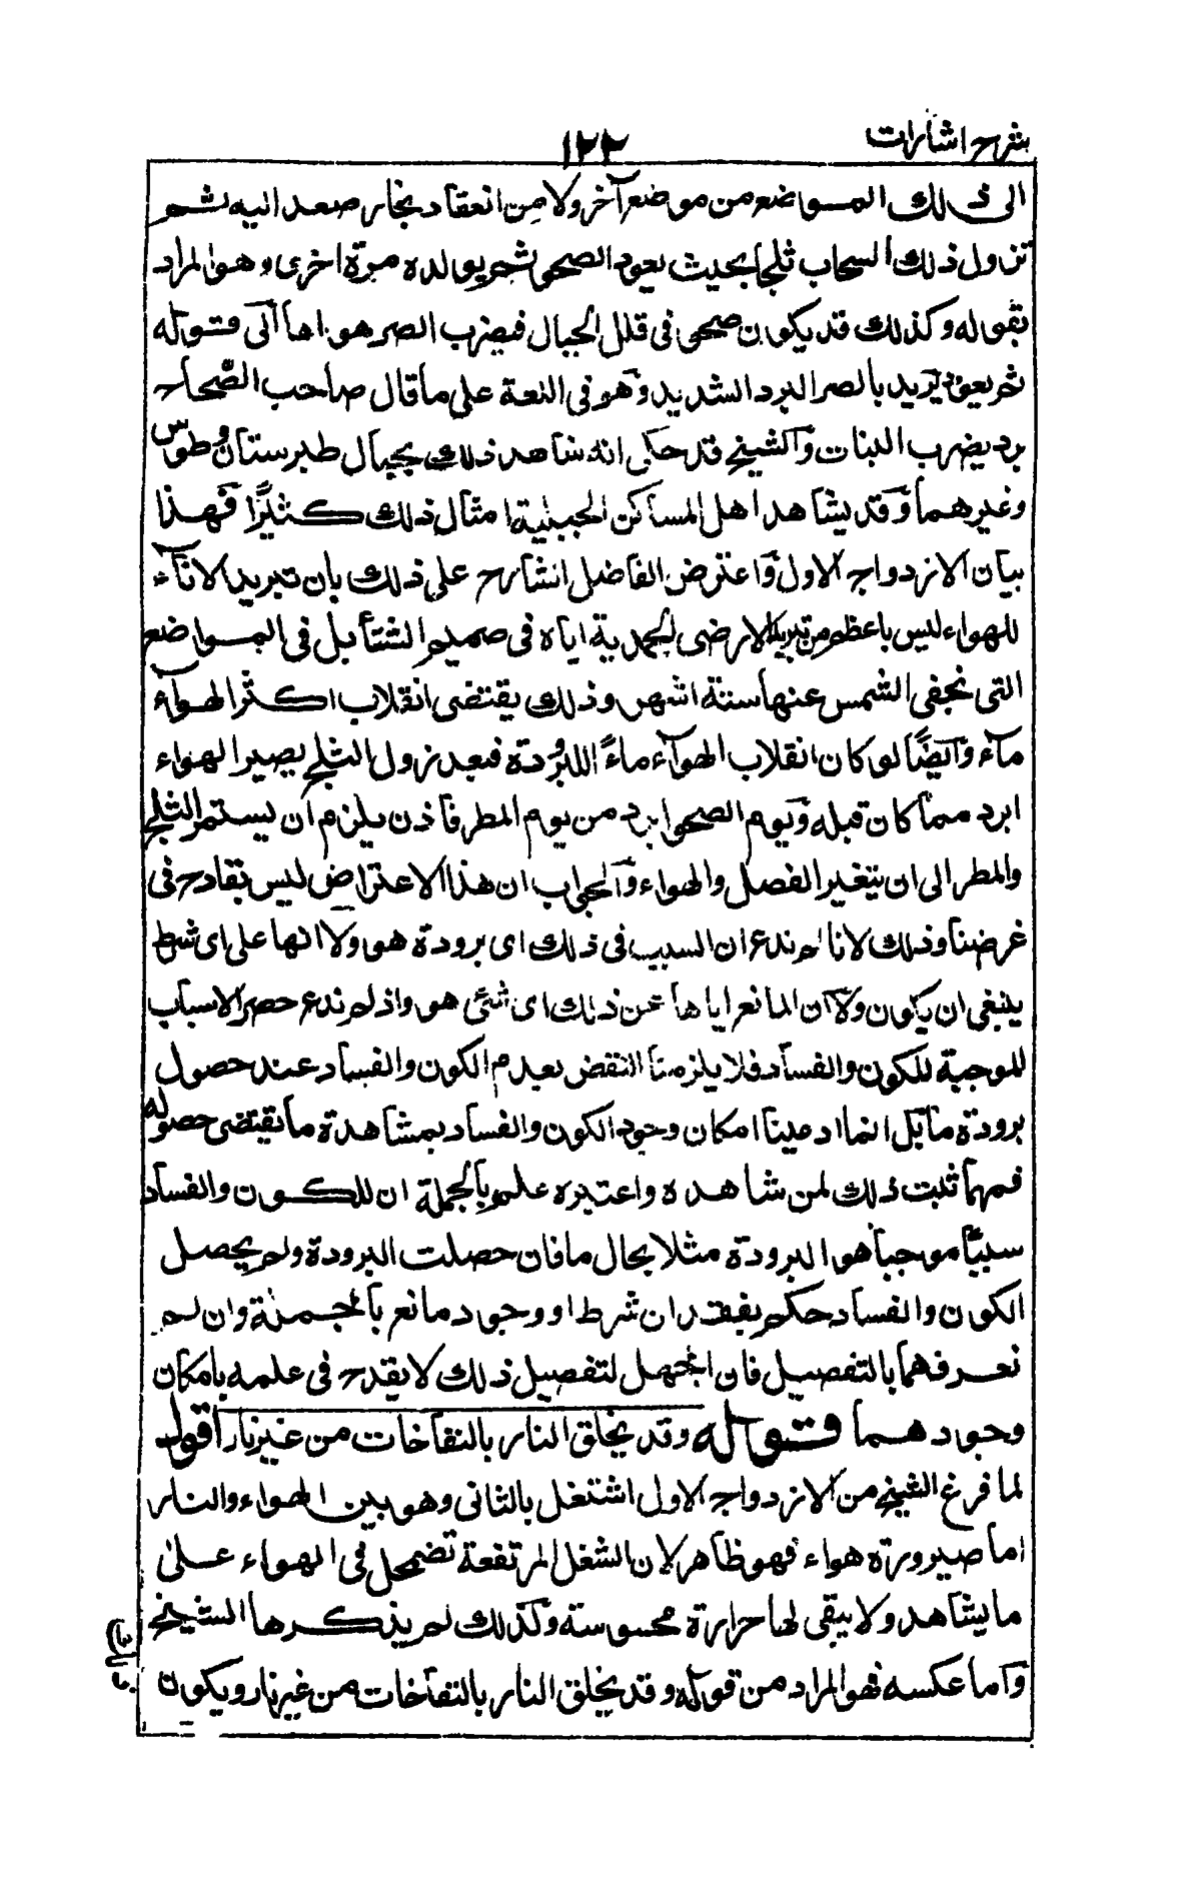 شرح اشارات
۱۲۲
الى ذلك المواضع من موضع آخر ولا من انعقاد بخار صعد اليه ثم
نزول ذلك السحاب ثلجا بحيث يعود الصحو ثم يولده مرة اخرى وهو المراد
بقوله وكذلك قد يكون صحو فى قلل الجبال فيضرب الصر هواءها الى قوله
ثم يعود يريد بالصر البرد الشديد وهو فى اللغة على ما قال صاحب الصحاح
برد يضرب النبات والشيخ قد حكى انه شاهد ذلك بجبال طبرستان وطوس
وغيرهما وقد يشاهد اهل المساكن الجبلية امثال ذلك كثيرًا فهذا
بيان الازدواج الاول واعترض الفاضل الشارح على ذلك بان تبريد الاناء
للهواء ليس باعظم من تبريد الارضى الجمدية اياه فى صميم الشتأ بل فى المواضع
التى تخفى الشمس عنها ستة اشهر وذلك يقتضى انقلاب اكثر الهوآء
مآء وآيضًا لو كان انقلاب الهوآء ماءً للبرودة فبعد نزول الثلج يصير الهواء
ابرد مما كان قبله ويوم الصحو ابرد من يوم المطر فاذن يلزم ان يستمر الثلج
والمطر الى ان يتغير الفصل والهواء والجواب ان هذا الاعتراض ليس بقادح فى
غرضنا وذلك لانا لم ندع ان السبب فى ذلك اى برودة هو ولا انها على اى شرط
ينبغى ان يكون ولا ان المانع اياها عن ذلك اى شئ هو واذ لم ندع حصر الاسباب
الموجبة للكون والفساد فلا يلزمنا النقض بعدم الكون والفساد عند حصول
برودة ما بل انما ادعينا امكان وجود الكون والفساد بمشاهدة ما يقتضى حصوله
فمهما ثبت ذلك لمن شاهده واعتبره علم بالجملة ان للكون والفساد
سببًا موجبا هو البرودة مثلا بحال ما فان حصلت البرودة ولم يحصل
الكون والفساد حكم بفقدان شرط او وجود مانع بالجملة وان لم
نعرفهما بالتفصيل فان الجهل لتفصيل ذلك لا يقدح فى علمه بامكان
وجودهما قوله وقد يخلق النار بالنفاخات من غير نار اقول
لما فرغ الشيخ من الازدواج الاول اشتغل بالثانى وهو بين الهواء والنار
اما صيرورة هواء فهو ظاهر لان الشعل المرتفعة تضمحل فى الهواء على
ما يشاهد ولا يبقى لها حرارة محسوسة وكذلك لم يذكرها الشيخ
وآما عكسه فهو المراد من قوله وقد يخلق النار بالنفاخات من غير نار ويكون